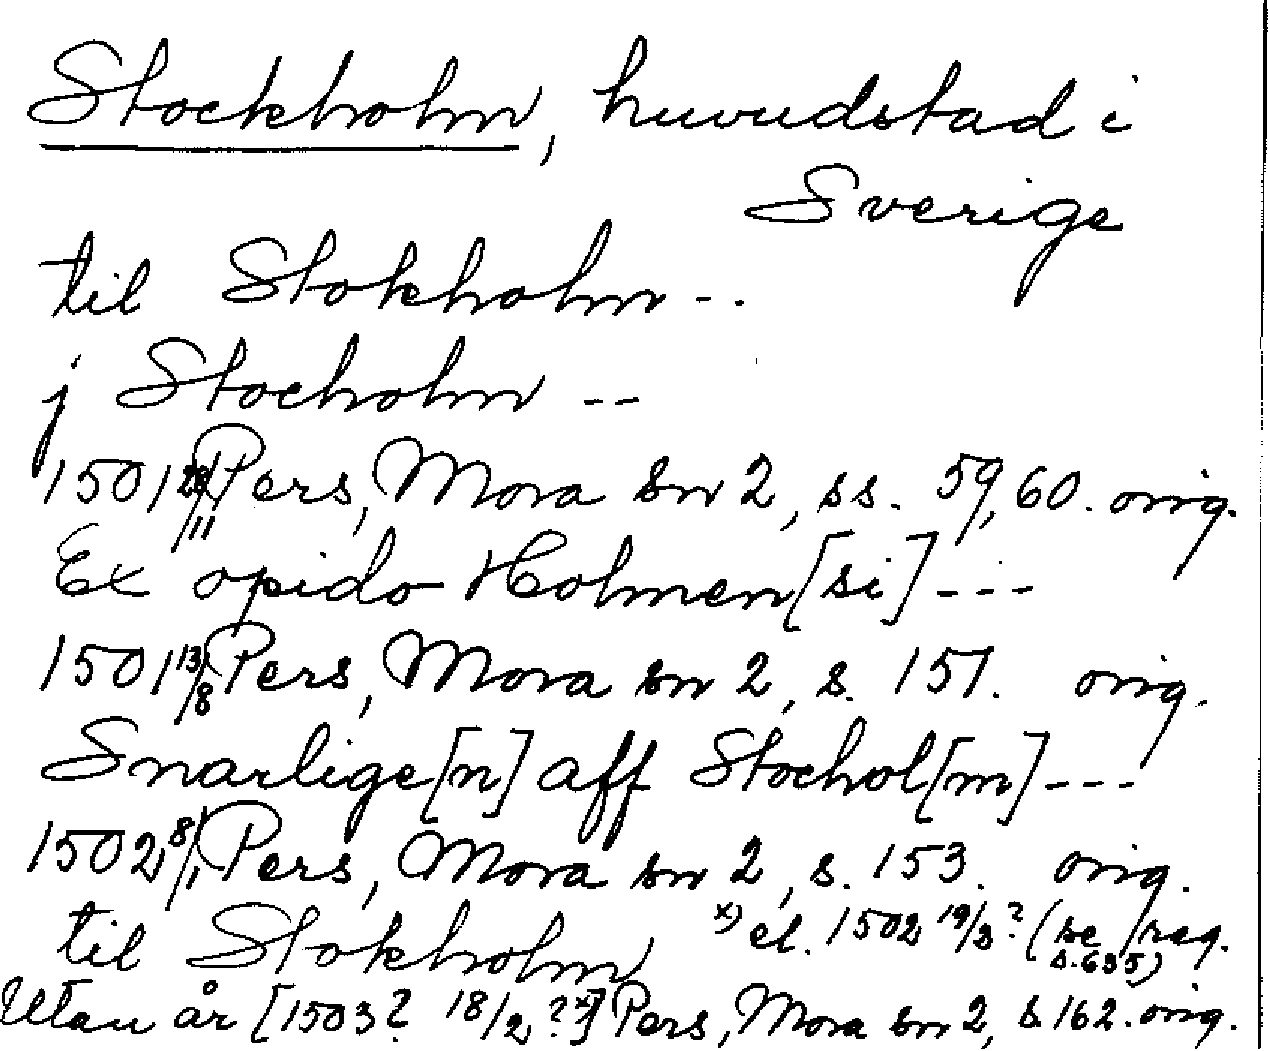 Stockholm, huvudstad i
Sverige
til Stokholm - -
j Stocholm - -
1501 /11 Pers, Mora sn 2, ss. 59, 60. orig.
Ex opido Holmen[si] - - -
1501 13/8 Pers, Mora sn 2, s. 151. orig.
Snarlige[n] aff Stochol[m] - - -
1502 8/1 Pers, Mora sn 2, s. 153. orig.
til Stokholm x) el. 1502 19/2? (se
s. 635)
Utan år [1503? 18/2? x)] Pers, Mora sn 2, s. 162. orig.